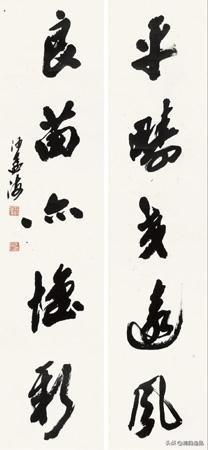 平疇交遠風
良苗亦懷新
沙孟海